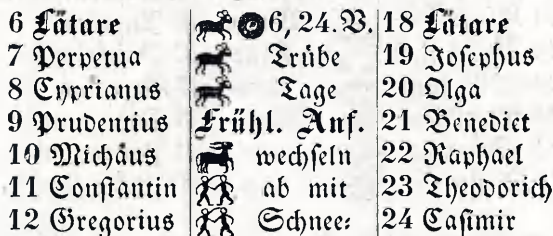 6 Lätare 6, 24. V. 18 Lätare
7 Perpetua Trübe 19 Josephus
8 Cyprianus Tage 20 Olga
9 Prudentius Frühl. Anf. 21 Benedict
10 Michäus wechseln 22 Raphael
11 Constantin ab mit 23 Theodorich
12 Gregorius Schnee: 24 Casimir